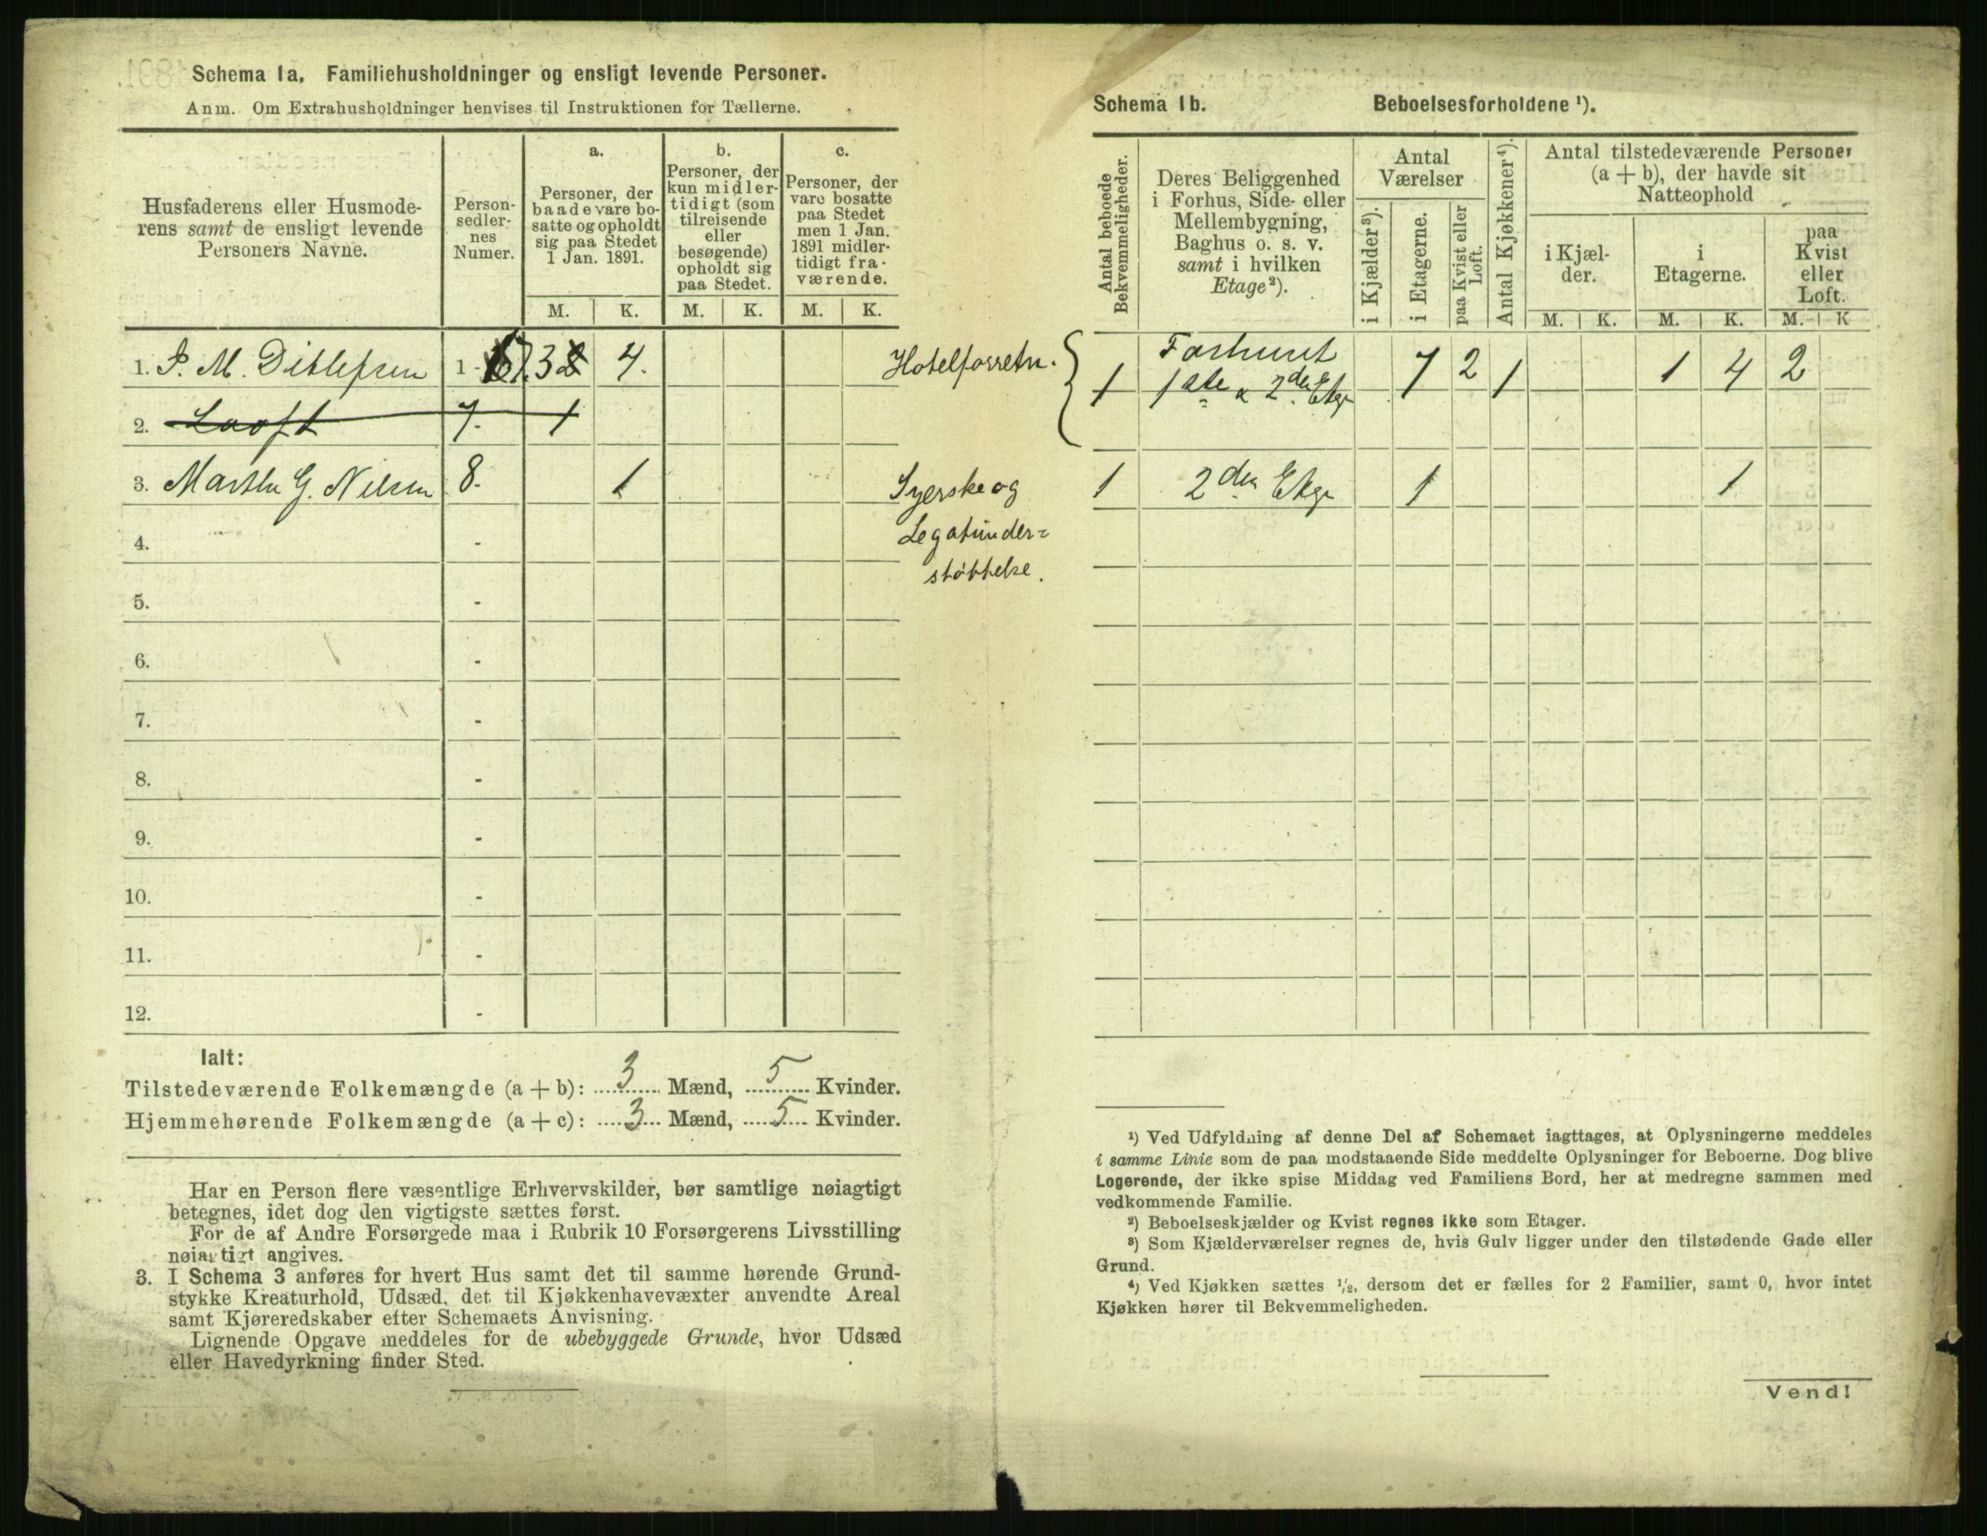 Schema 1a. Familiehusholdninger og ensligt levende Personer.
Anm. Om Extrahusholdninger henvises til Instruktionen for Tællerne.
Husfaderens eller Husmode-
rens samt de ensligt levende
Personers Navne.
Person-
sedler-
nes
Numer.
a.
Personer, der
baade vare bo-
satte og opholdt
sig paa Stedet
1 Jan. 1891.
b.
Personer, der
kun midler-
tidigt (som
tilreisende
eller
besøgende)
opholdt sig
paa Stedet.
c.
Personer, der
vare bosatte
paa Stedet
men 1 Jan.
1891 midler-
tidigt fra-
værende.
M. K. M. K. M. K.
1. P. M. Ditlefsen 1 - 7. 3 4. Hotelforretn.
2. Looft 7. 1
3. Marthe G. Nilsen 8. 1 Syerske og
4. - Legatunder=
støttelse.
5. -
6. -
7. -
8. -
9. -
10. -
11. -
12. -
Ialt:
Tilstedeværende Folkemængde (a + b): 3 Mænd, 5 Kvinder.
Hjemmehørende Folkemængde (a + c): 3 Mænd, 5 Kvinder.
Har en Person flere væsentlige Erhvervskilder, bør samtlige nøiagtigt
betegnes, idet dog den vigtigste sættes først.
For de af Andre Forsørgede maa i Rubrik 10 Forsørgerens Livsstilling
nøiagtigt angives.
3. I Schema 3 anføres for hvert Hus samt det til samme hørende Grund-
stykke Kreaturhold, Udsæd, det til Kjøkkenhavevæxter anvendte Areal
samt Kjøreredskaber efter Schemaets Anvisning.
Lignende Opgave meddeles for de ubebyggede Grunde, hvor Udsæd
eller Havedyrkning finder Sted.
Schema 1b. Beboelsesforholdene ¹).
Antal beboede
Bekvemmeligheder.
Deres Beliggenhed
i Forhus, Side- eller
Mellembygning,
Baghus o. s. v.
samt i hvilken
Etage²).
Antal
Værelser
i Kjælder³).
i Etagerne.
paa Kvist eller
Loft.
Antal Kjøkkener⁴).
Antal tilstedeværende Personer
(a + b), der havde sit
Natteophold
i Kjæl-
der.
i
Etagerne.
paa
Kvist
eller
Loft.
M. K. M. K. M. K
Forhuset
1 1ste & 2den Etge 7 2 1 1 4 2
1 2den Etge 1 1
¹) Ved Udfyldning af denne Del af Schemaet iagttages, at Oplysningerne meddeles
i samme Linie som de paa modstaaende Side meddelte Oplysninger for Beboerne. Dog blive
Logerende, der ikke spise Middag ved Familiens Bord, her at medregne sammen med
vedkommende Familie.
²) Beboelseskjælder og Kvist regnes ikke som Etager.
³) Som Kjælderværelser regnes de, hvis Gulv ligger under den tilstødende Gade eller
Grund.
⁴) Ved Kjøkken sættes ¹/₂, dersom det er fælles for 2 Familier, samt 0, hvor intet
Kjøkken hører til Bekvemmeligheden.
Vend!